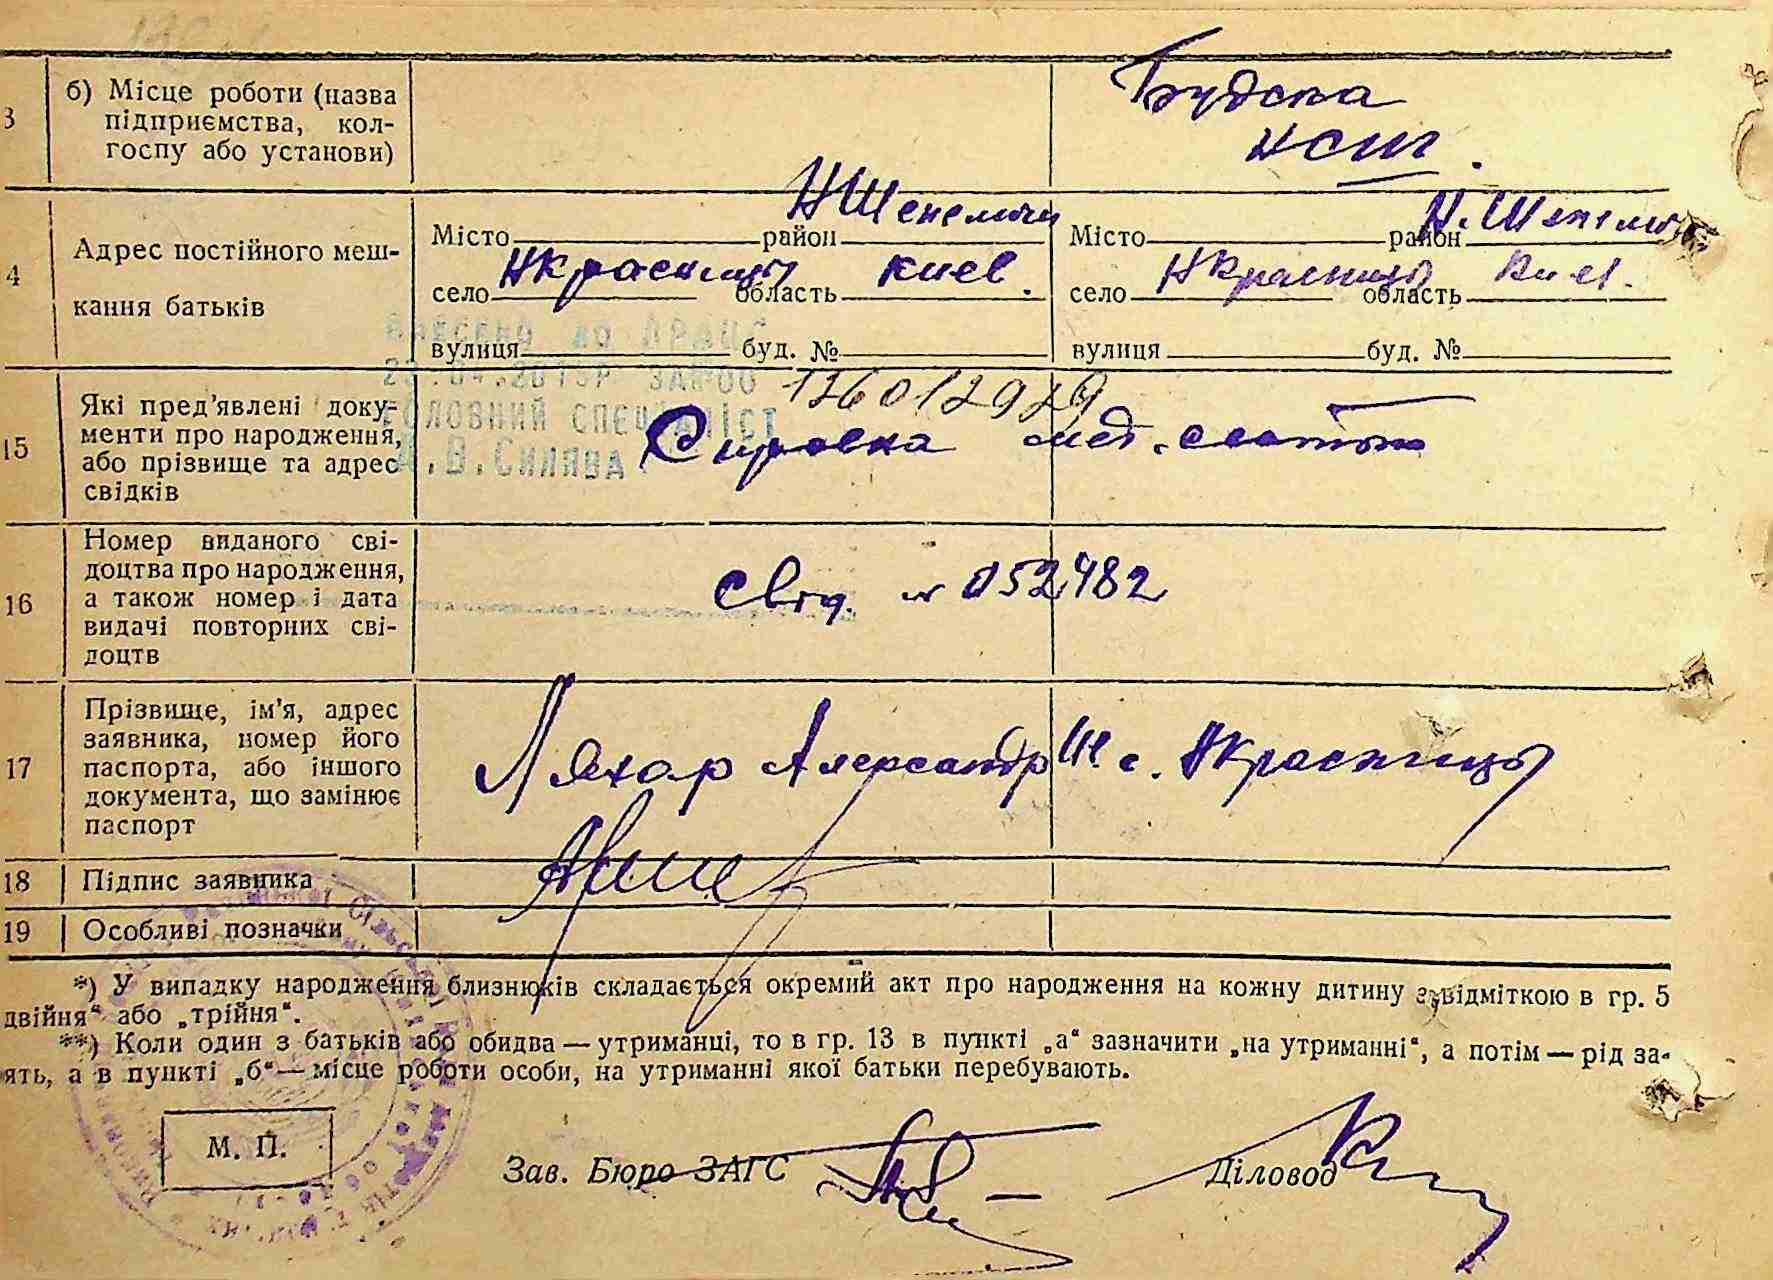 3 б) Місце роботи (назва
підприємства, кол-
госпу або установи)
Будска
НСШ.
4 Адрес постійного меш-
кання батьків
НШепеличи Н.Шепели
Місто район Місто район
НКрасницы Киев. НКрасницы Киев.
село область село область
вулиця буд. № вулиця буд. №
Внесено до ДРАЦС
ГОЛОВНИЙ СПЕЦІАЛІСТ
.В.Силява
15 Які пред'явлені доку-
менти про народження,
або прізвище та адрес
свідків
Справка мед.
16 Номер виданого сві-
доцтва про народження,
а також номер і дата
видачі повторних сві-
доцтв
Свід. № 052482
17 Прізвище, ім'я, адрес
заявника, номер його
паспорта, або іншого
документа, що замінює
паспорт
Ляхар Александр с. НКрасницы
18 Підпис заявника
19 Особливі позначки
*) У випадку народження близнюків складається окремий акт про народження на кожну дитину з відміткою в гр. 5
двійня“ або „трійня“.
**) Коли один з батьків або обидва — утриманці, то в гр. 13 в пункті „а“ зазначити „на утриманні“, а потім — рід за-
ять, а в пункті „б“ — місце роботи особи, на утриманні якої батьки перебувають.
М. П.
Зав. Бюро ЗАГС Діловод